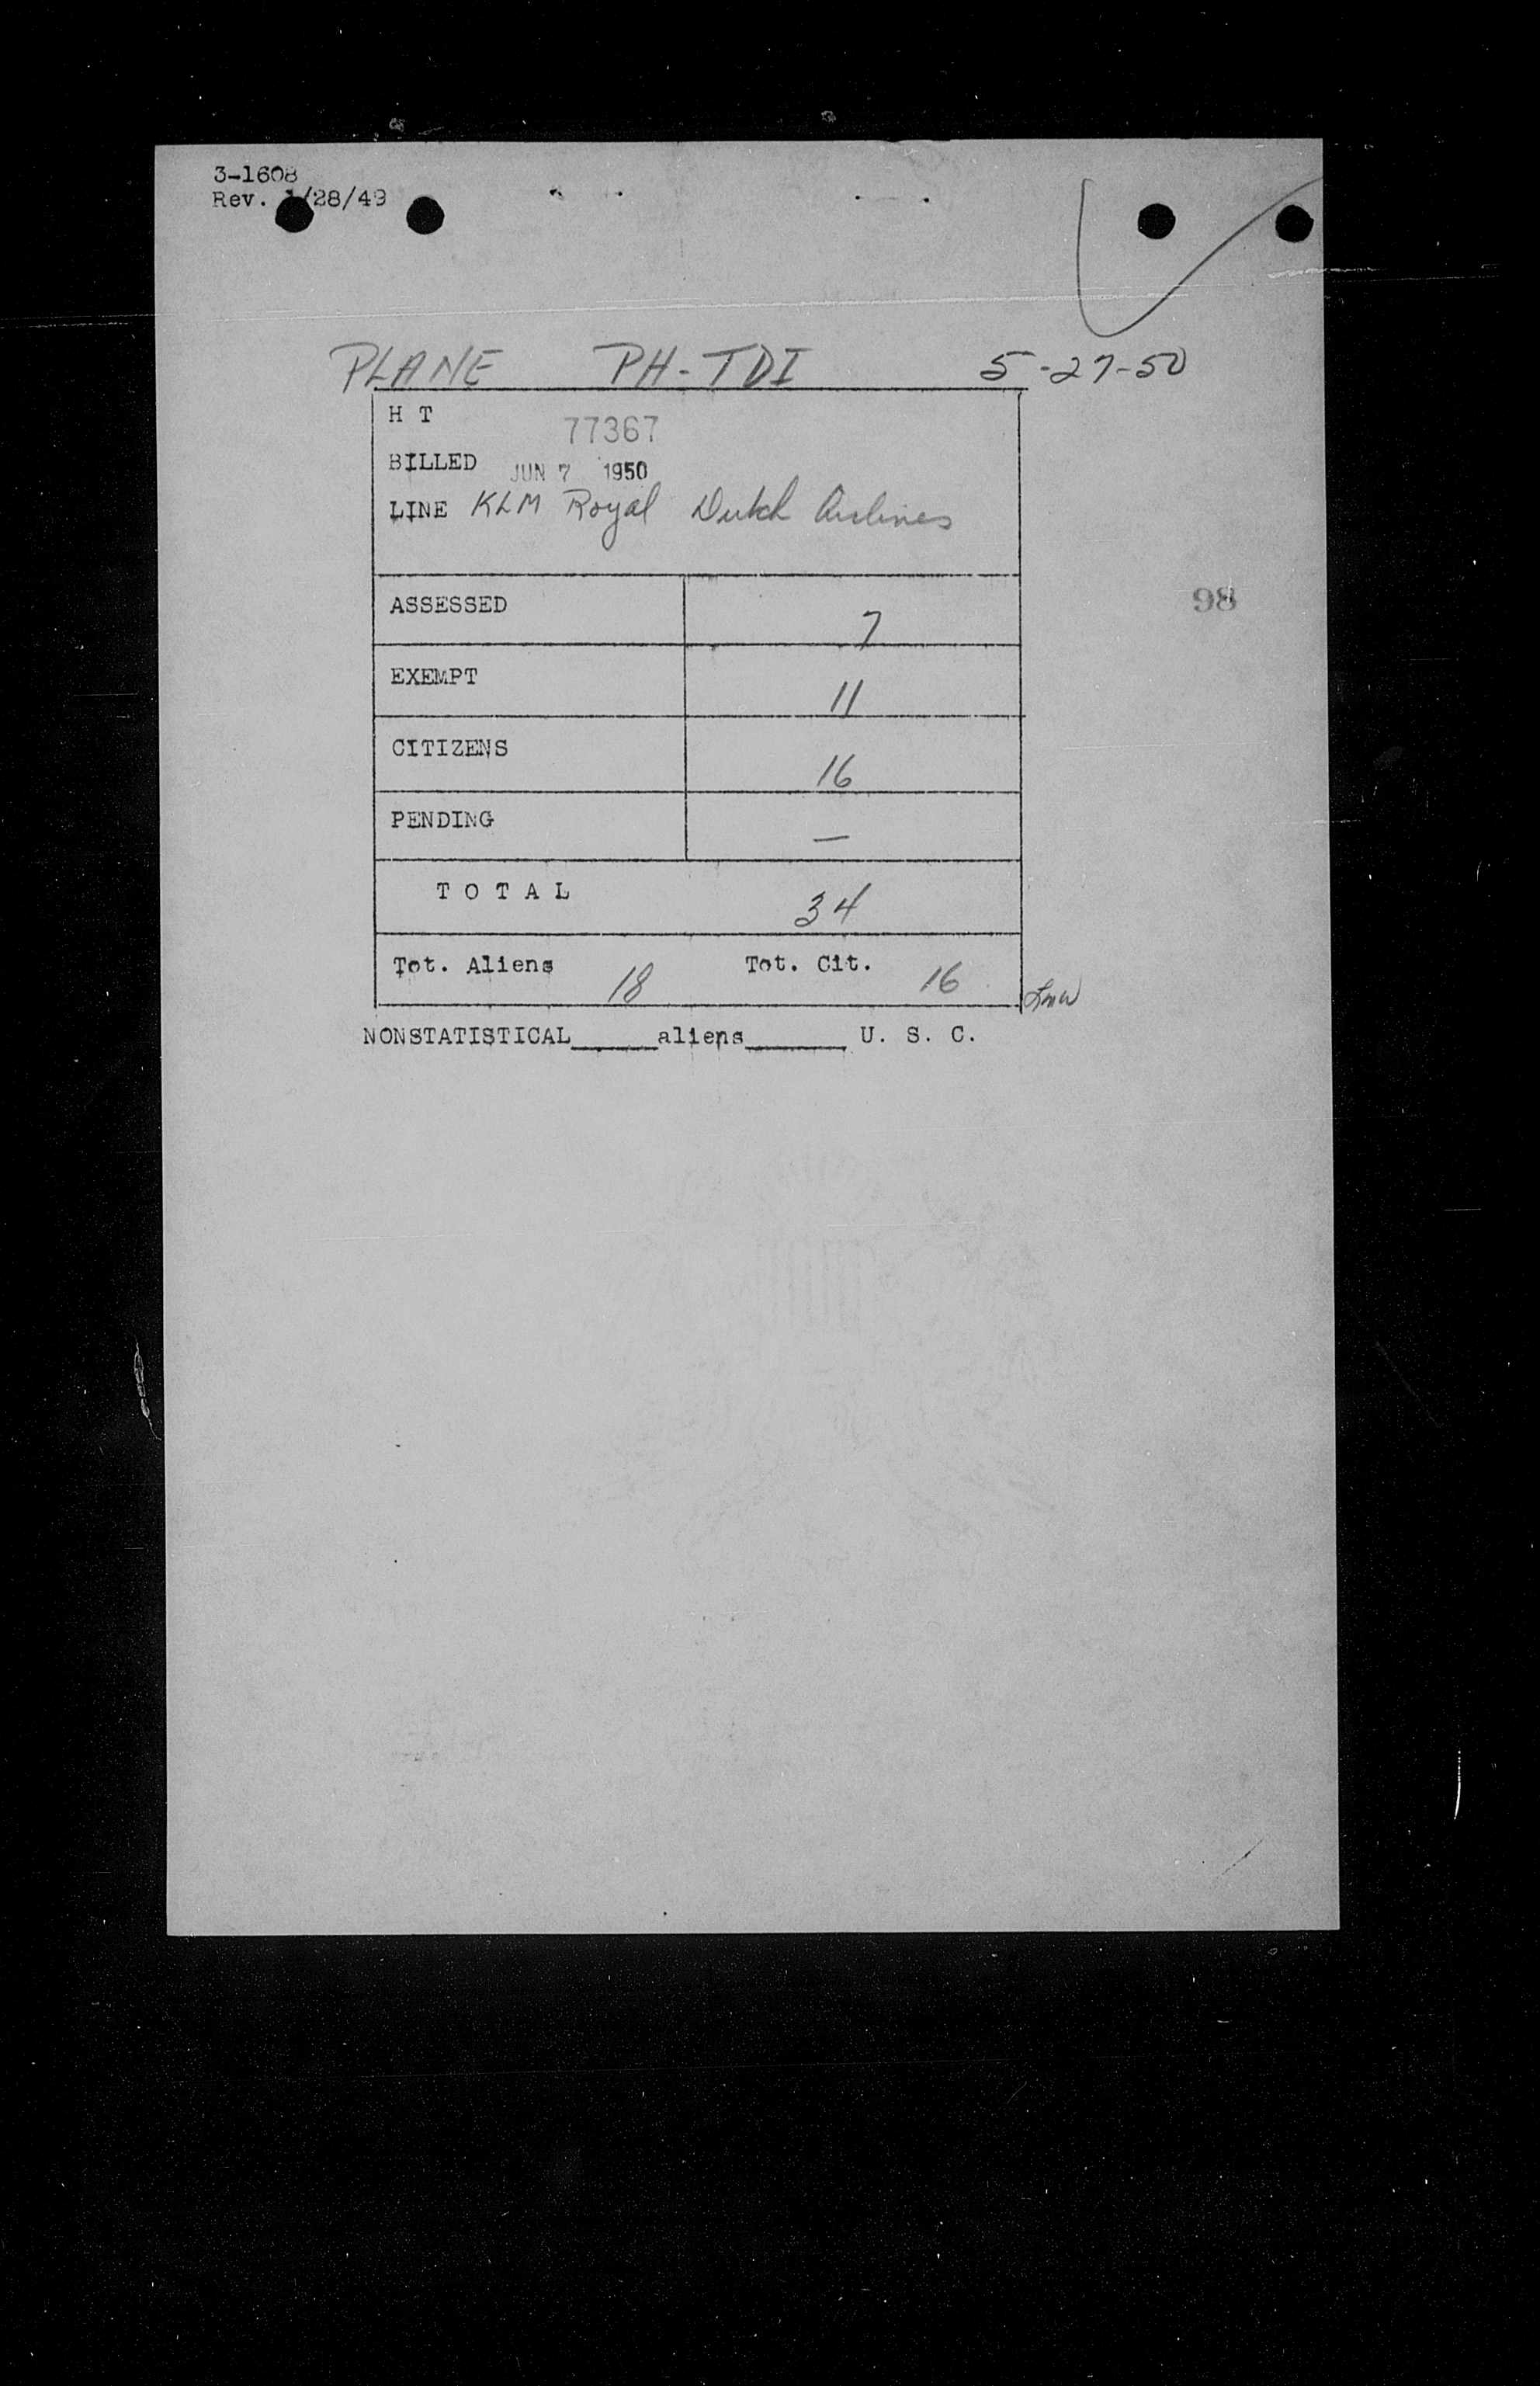 3-1608
Rev. 1/28/49
PLANE PH-TDI 5-27-50
H T 77367
BILLED JUN 7 1950
LINE KLM Royal Dutch Airlines
98
ASSESSED 7
EXEMPT 11
CITIZENS 16
PENDING —
T O T A L 34
Tot. Aliens 18 Tot. Cit. 16
NONSTATISTICAL_____aliens______ U. S. C.